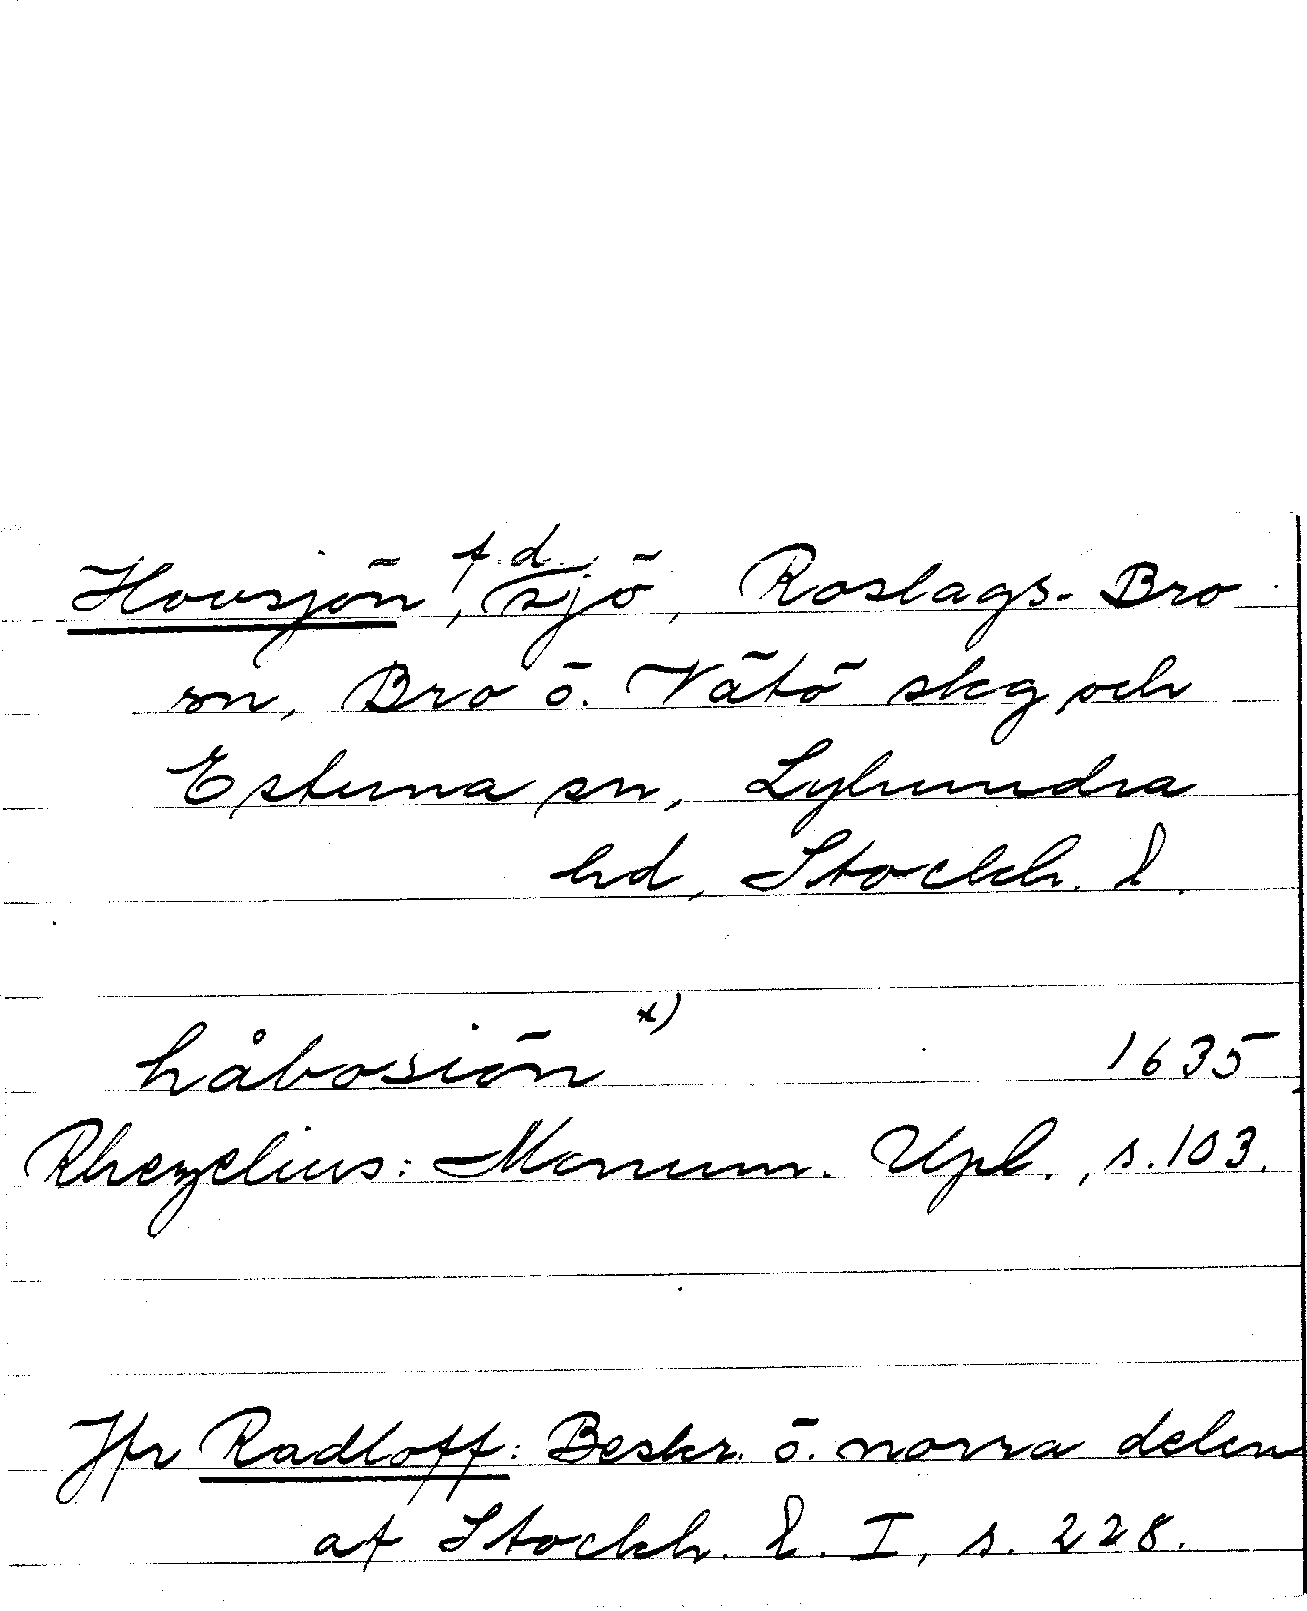 Hovsjön, f.d. sjö, Roslags-Bro
sn, Bro o. Vätö skg och
Estuna sn, Lyhundra
hd, Stockh. l.
håbosiön x) 1635
Rhezelius: Monum. Upl., s. 103.
Jfr Radloff: Beskr. ö. norra delen
af Stockh. l. I, s. 228.